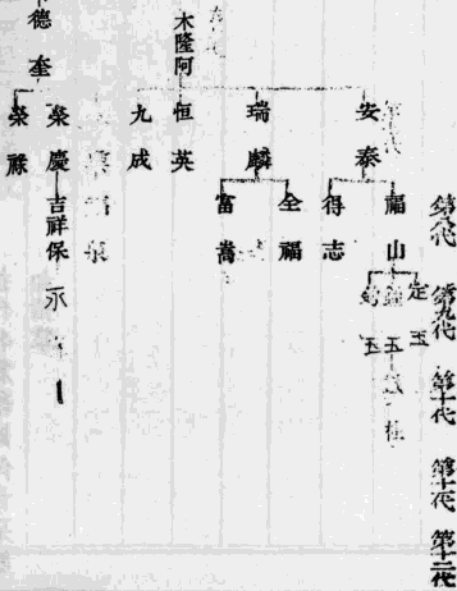 第八代
第九代
第十代
第十一代
第十二代
安泰
福山
定玉
玉
玉
桂
得志
瑞麟
全福
富嵩
木隆阿
恒英
九成
德奎
榮慶
吉祥保
永
榮祿